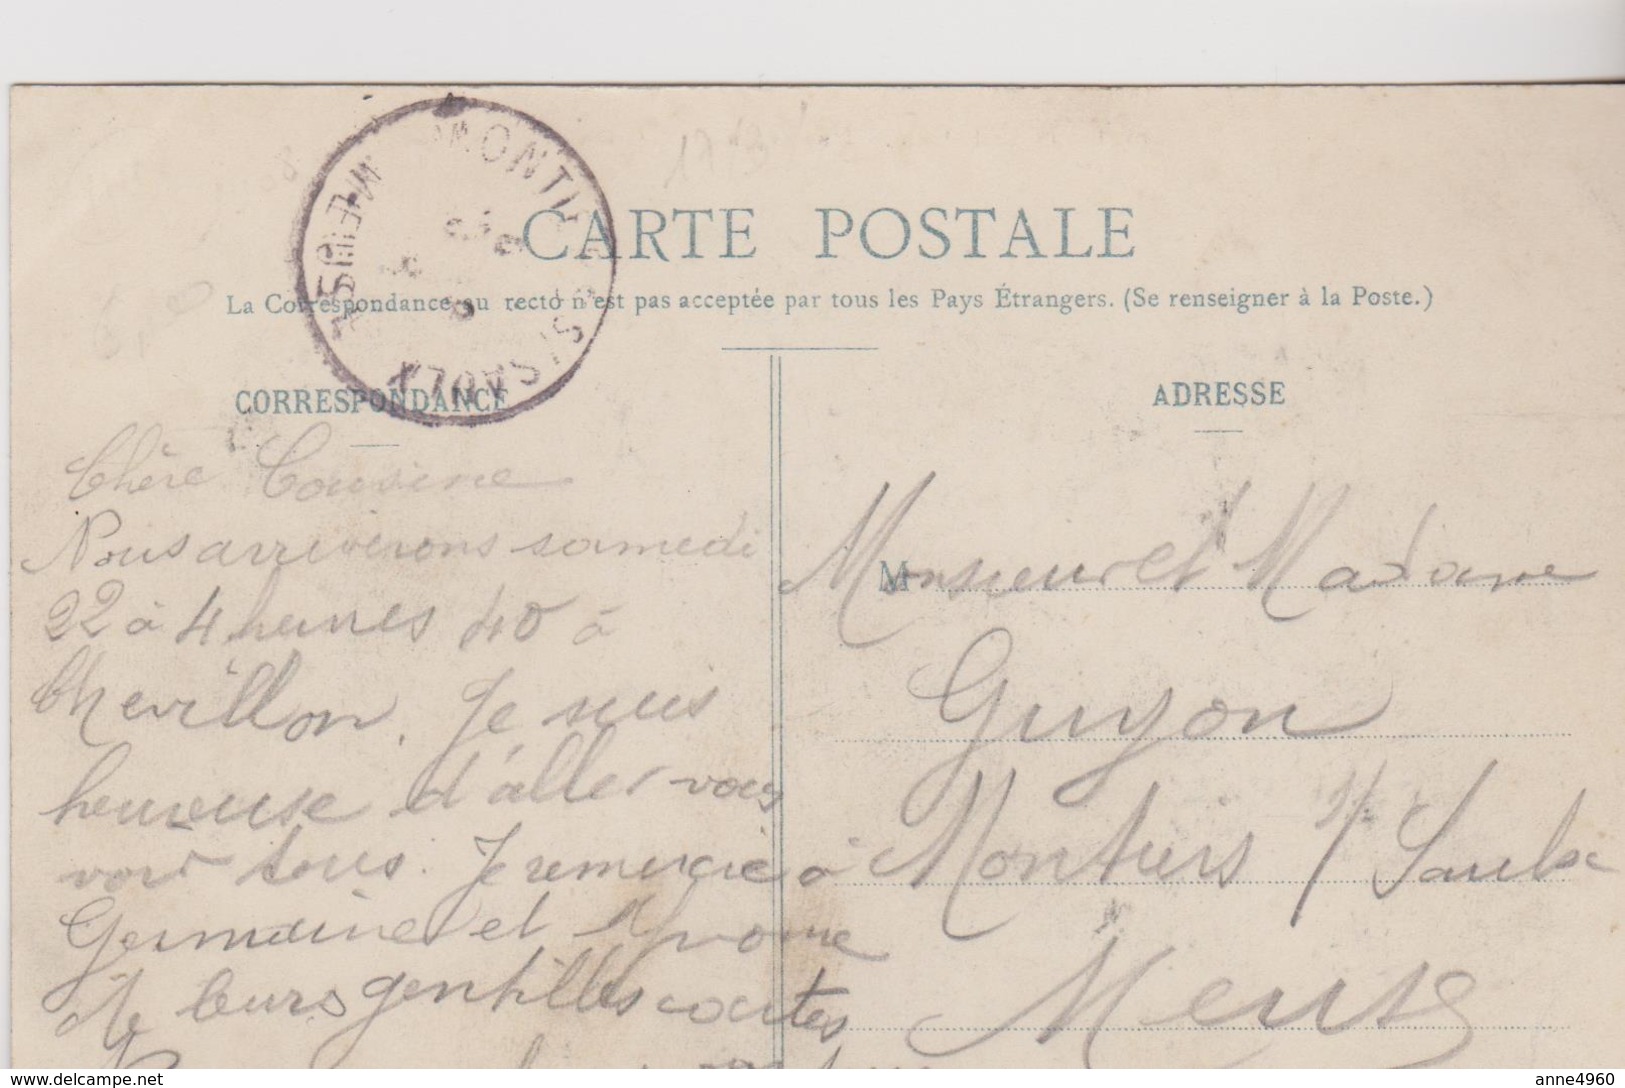 MONTIERS S/ SAULX
MEUSE
CARTE POSTALE
La Correspondance au recto n'est pas acceptée par tous les Pays Étrangers. (Se renseigner à la Poste.)
CORRESPONDANCE
Chère Cousine
Nous arriverons samedi
22 à 4 heures 40 à
Chevillon. Je suis
heureuse d'aller vous
voir tous. Je remercie
Germaine et Yvonne
de leurs gentilles cartes
ADRESSE
M Monsieur et Madame
Guyon
à Montiers s/ Saulx
Meuse
delcampe.net
anne4960